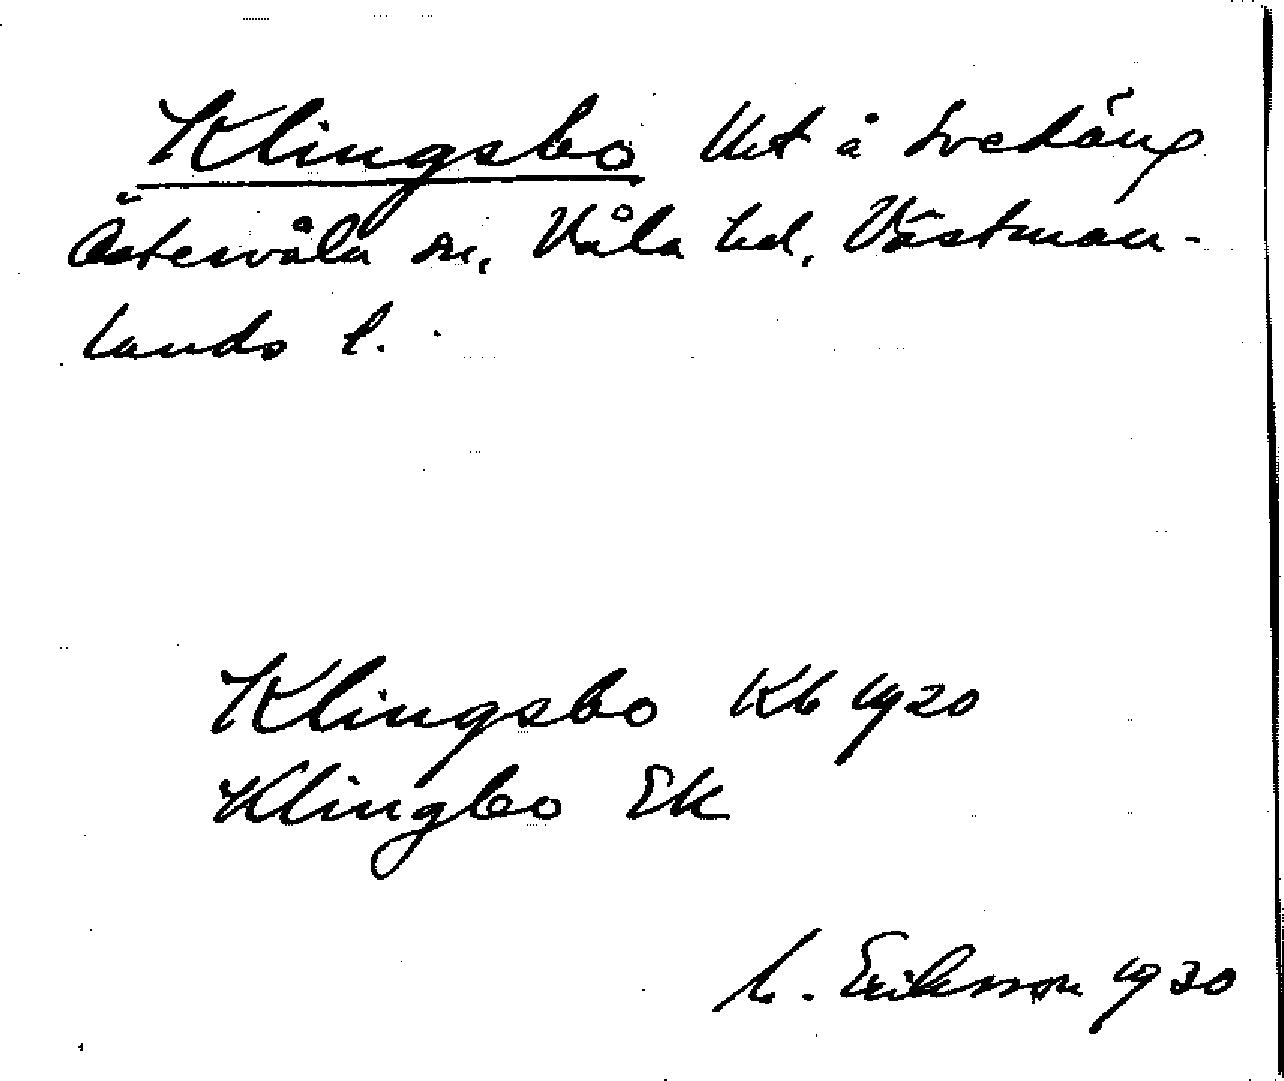 Klingsbo Uet å Svekäng
Östervåla sn, Våla hd, Västman-
lands l.
Klingsbo Kb 1920
Klingbo Ek
M. Eriksson 1930